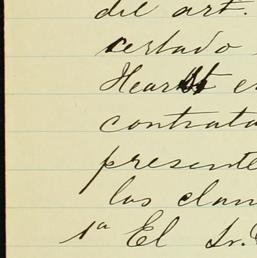 del art.
certado
Hearst e
contrata
presente
las clau
1ª El Sr.